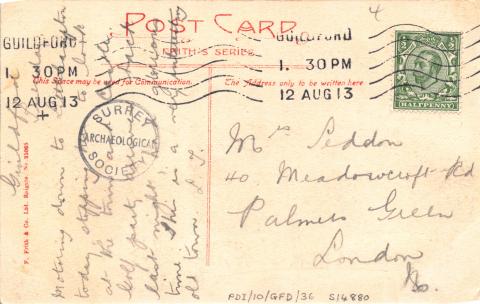 4
POST CARD
FRITH'S SERIES.
GUILDFORD
1. 30PM
12 AUG 13
+
GUILDFORD
1. 30 PM
12 AUG 13
This Space may be used for Communication.
The Address only to be written here
HALFPENNY
SURREY
ARCHAEOLOGICAL
SOCIETY
F. Frith & Co. Ltd. Reigate. No
Guildford
Motoring down to
today stopping
at the town
Golf party
last night
time this is a very
old town
Mrs Seddon
40 Meadowcroft Rd
Palmers Green
London
No.
PDI/10/GFD/36 S14880